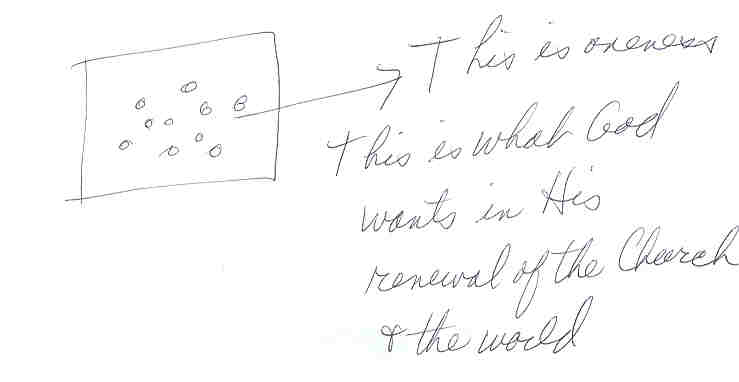 This is oneness
This is what God
wants in His
renewal of the Church
& the world